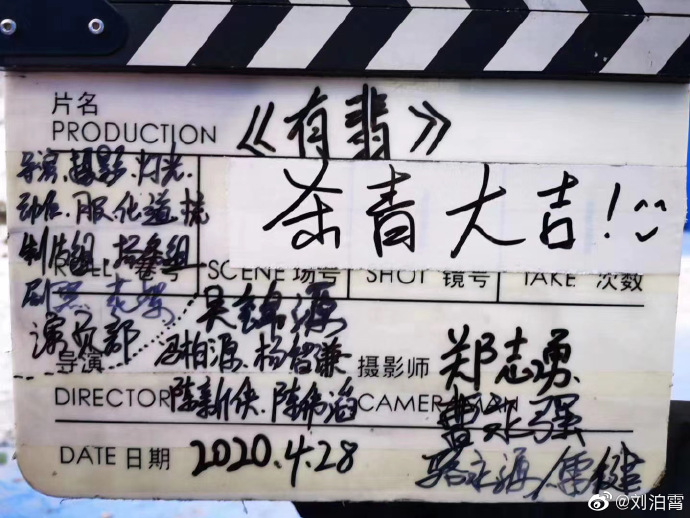 片名
PRODUCTION 《有翡》
杀青大吉!
导演.摄影.灯光.
动作.服.化.道.梳
制片组.
ROLL 卷号 SCENE 场号 SHOT 镜号 TAKE 次数
剧照.花絮
演员部
吴锦源
导演 冯柏源.杨智谦 摄影师 郑志勇
DIRECTOR 陈新侠.陈伟滔 CAMERAMAN 曹永强
DATE 日期 2020.4.28
骆永源/雷健
@刘泊霄